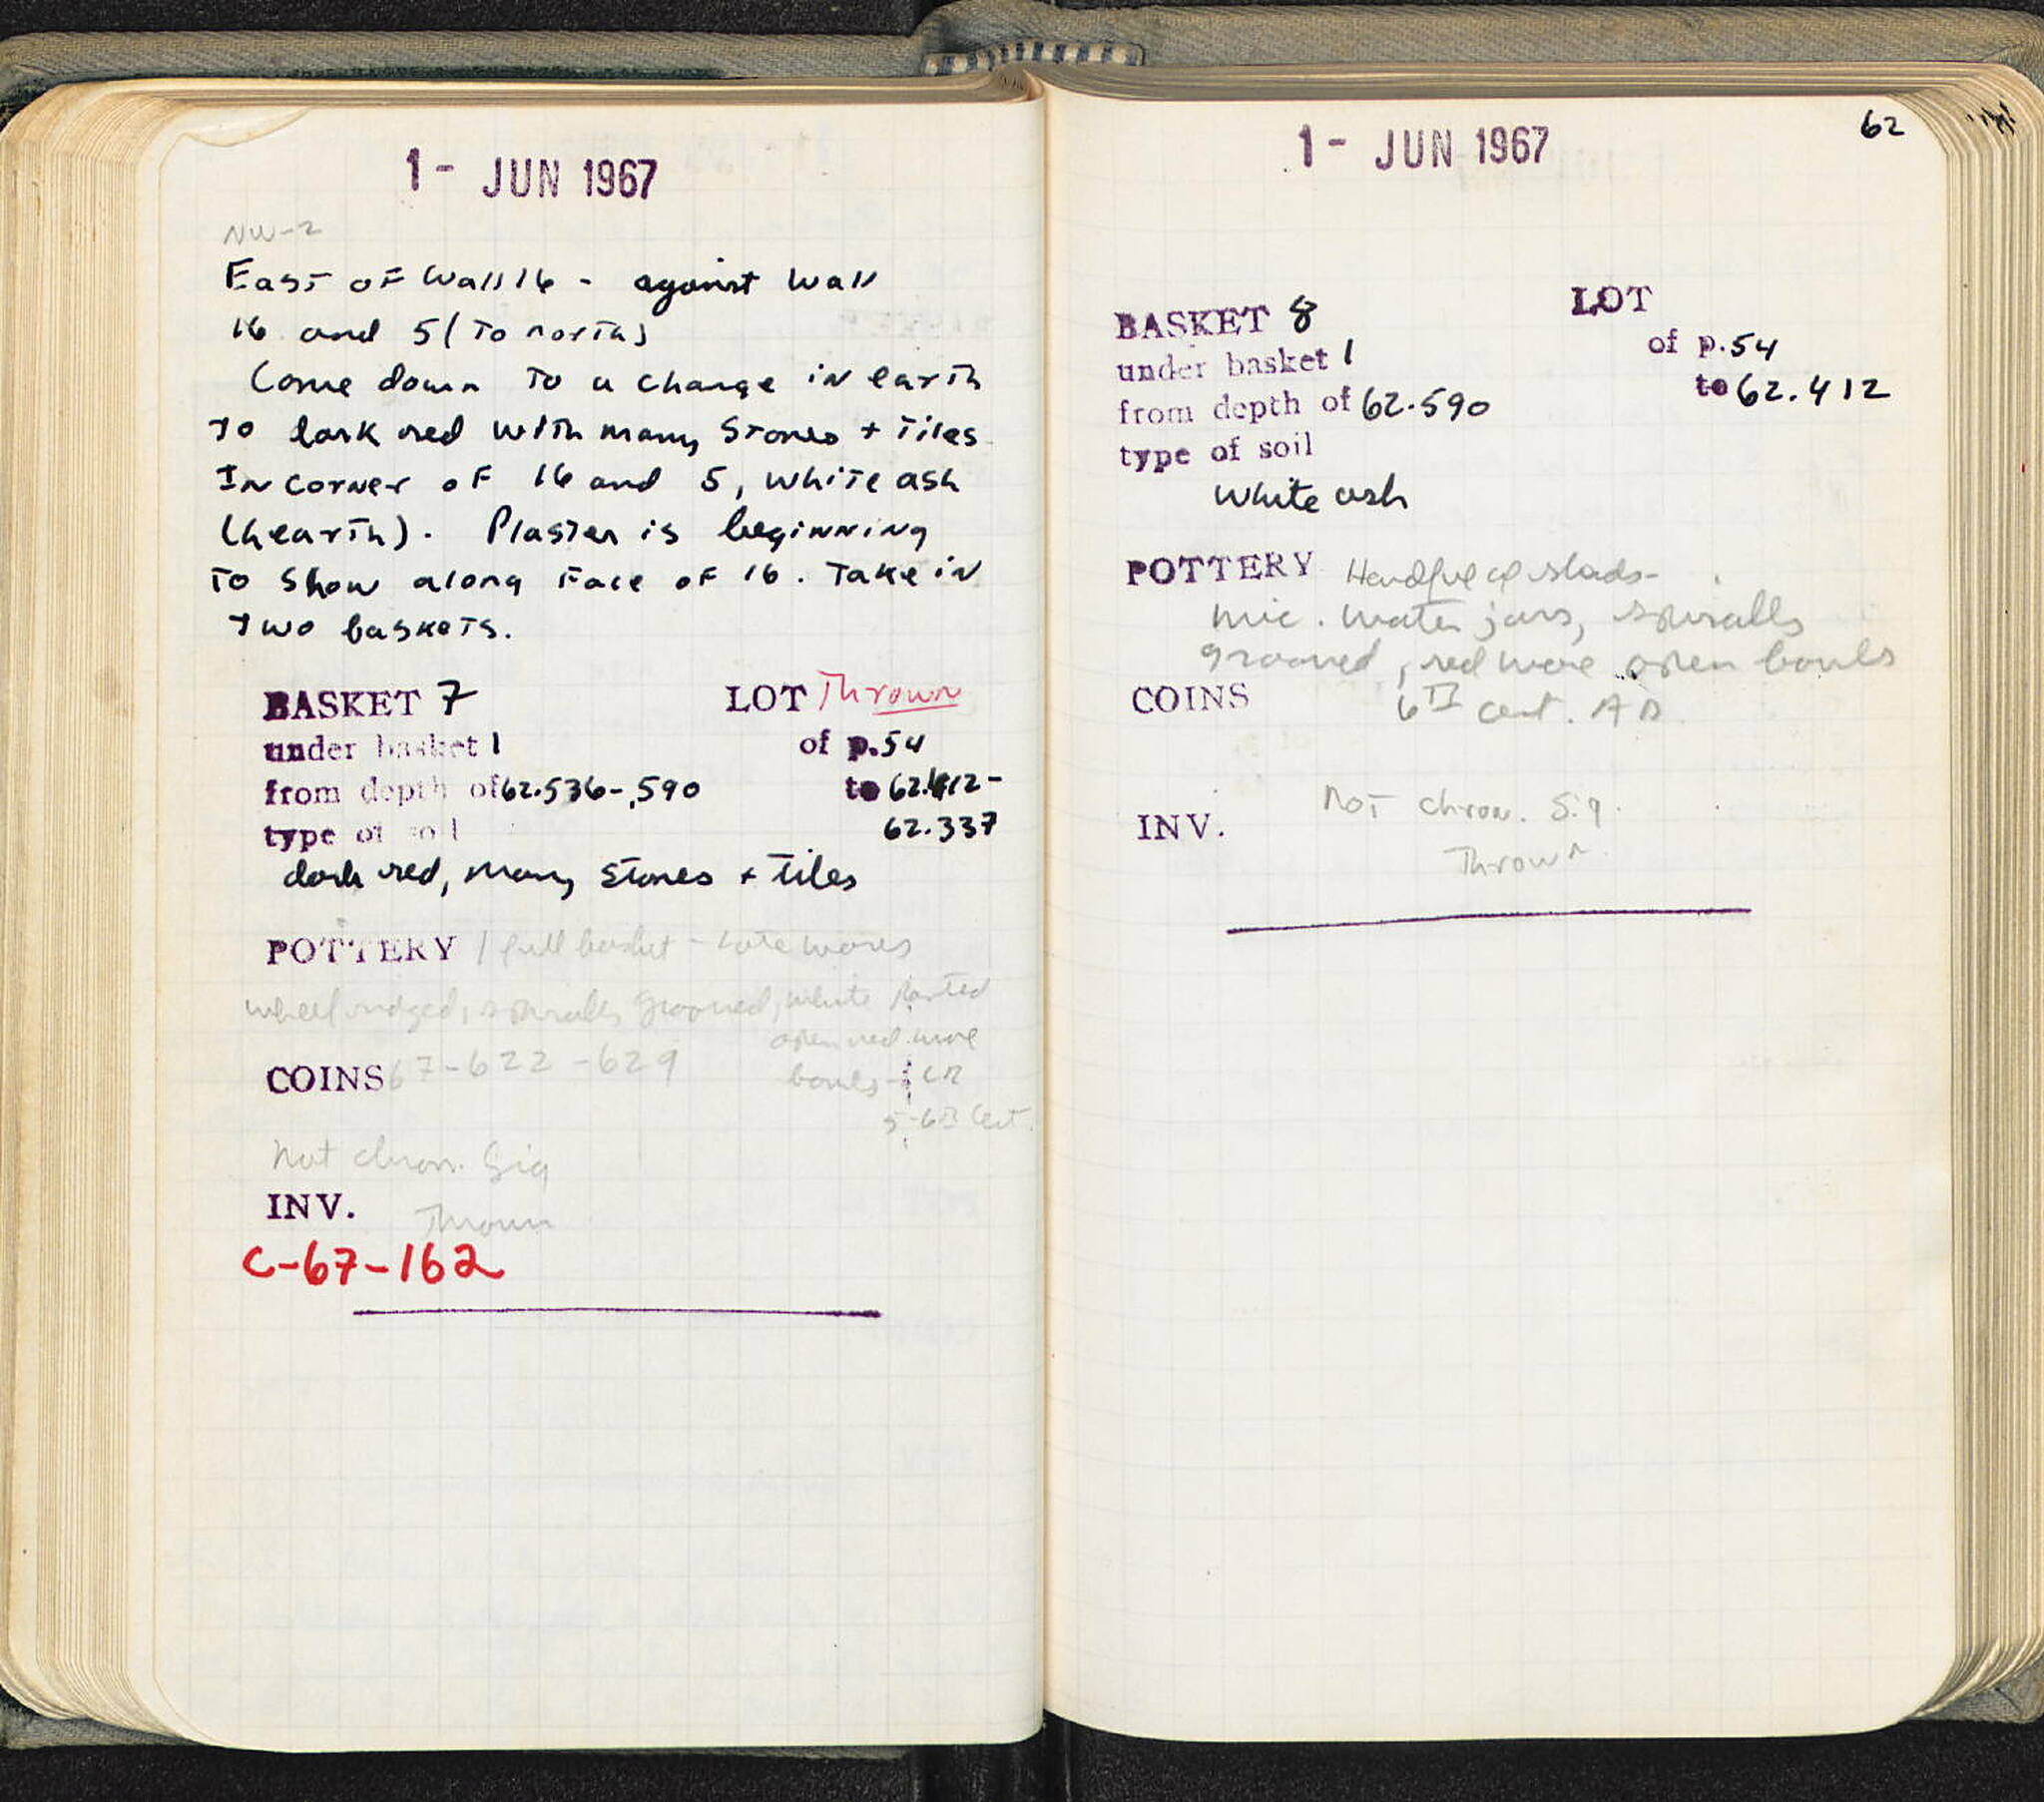 1- JUN 1967
NW-2
East of Wall 16 - against Wall
16 and 5 (to north)
Come down to a change in earth
to dark red with many stones + tiles
In corner of 16 and 5, white ash
(hearth). Plaster is beginning
to show along face of 16. Take in
two baskets.
BASKET 7 LOT Thrown
under basket 1 of p.54
from depth of 62.536-.590 to 62.412-
62.337
type of soil
dark red, many stones + tiles
POTTERY 1 full basket - Late wares
wheel ridged, spirally grooved, white painted
open red ware
COINS 67-622-629 bowls - LR
5-6th Cent.
Not chron. Sig
INV. Thrown
C-67-162
62
1- JUN 1967
BASKET 8 LOT
under basket 1 of p.54
from depth of 62.590 to 62.412
type of soil
white ash
POTTERY Handful of sherds-
mic. water jars, spirally
grooved, red ware open bowls
COINS 6th cent. AD
Not chron. Sig.
INV.
Thrown